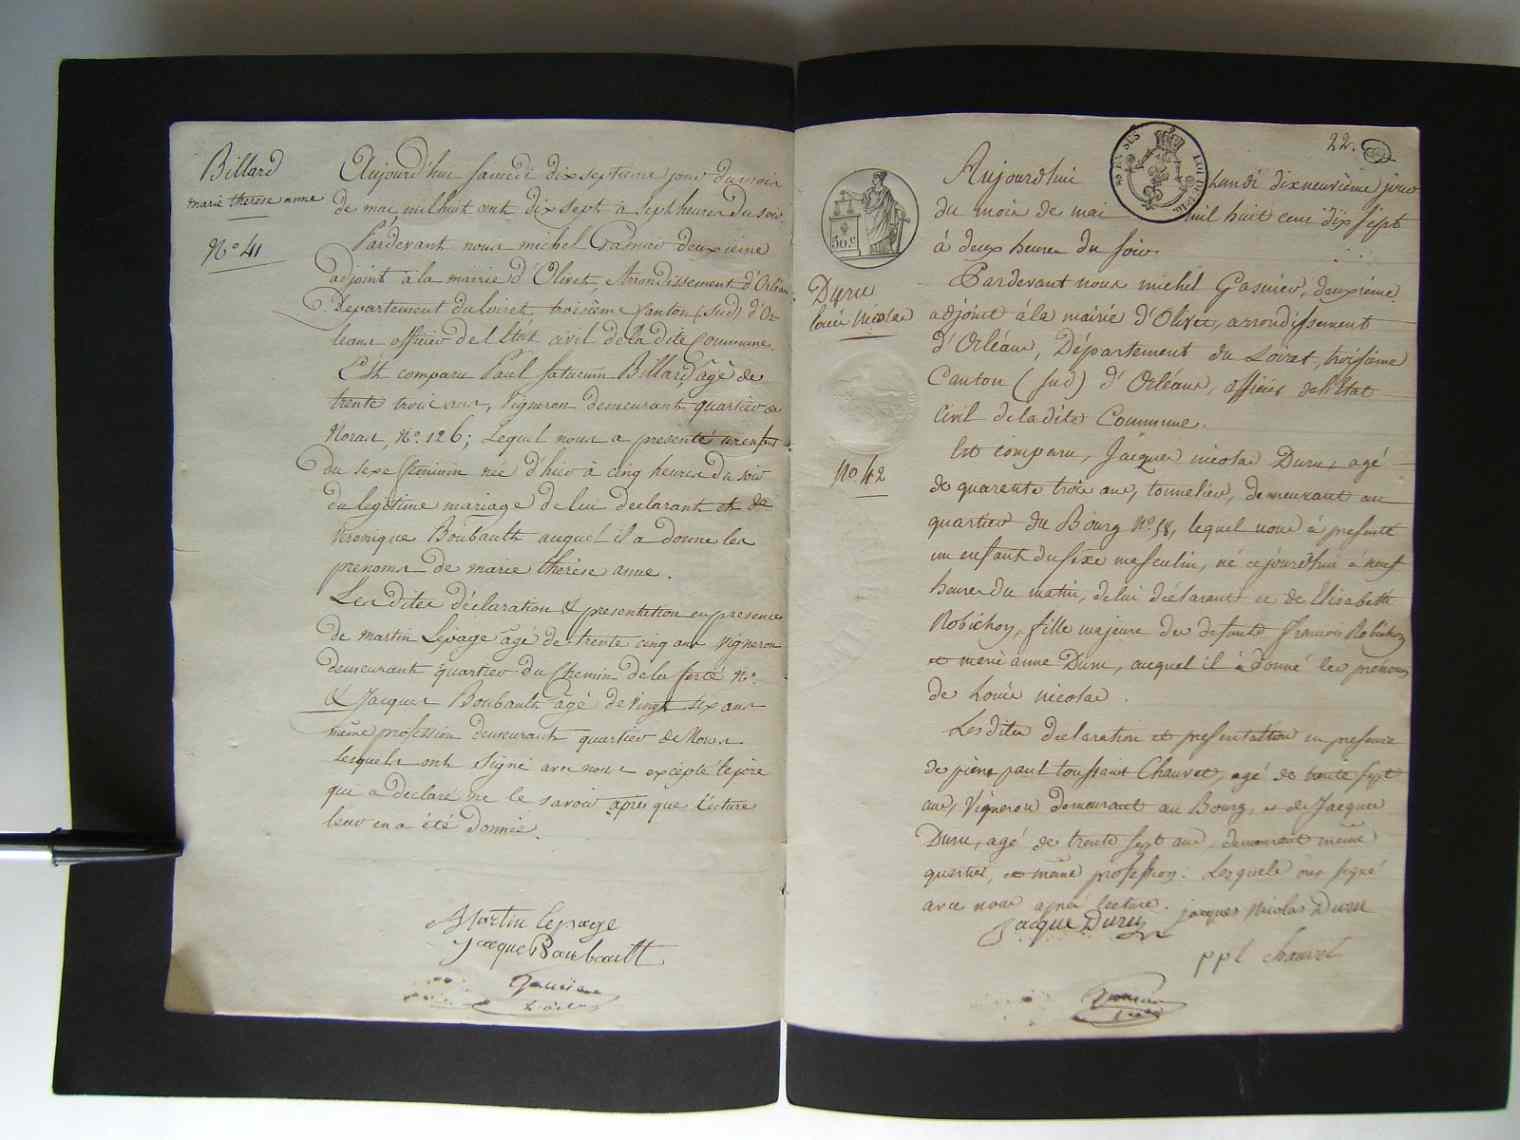 Billard
marie therese anne
N.° 41
Aujourd'hui Samedi dix septieme jour du mois
de mai mil huit cent dix sept à sept heures du soir
Pardevant nous michel Gasnier deuxieme
adjoint à la mairie d'Olivet, Arrondissement d'Orléans
Département du Loiret, troisieme Canton (Sud) d'Or
leans officier de l'état civil de la dite Commune.
Est comparu Paul saturnin Billard âgé de
trente trois ans, Vigneron demeurant quartier de
Noras, N.° 126; Lequel nous a presenté un enfant
du sexe feminin née d'hier à cinq heures du soir
du legitime mariage de lui declarant et de
Veronique Boubault auquel il a donné les
prenoms de marie thérèse anne.
Les dites déclaration & presentation en presence
de martin Lepage âgé de trente cinq ans vigneron
demeurant quartier du Chemin de la ferté N.°
& Jacques Boubault âgé de vingt six ans
même profession demeurant quartier de Noras
Lesquels ont signé avec nous excepté le père
qui a déclaré ne le savoir après que lecture
leur en a été donnée.
Martin lepage
Jacque Boubault
Gasnier
22.
Aujourdhui Lundi dixneuvième jour
du mois de mai mil huit cens dix sept
à deux heures du soir.
50 c
Duru
Louis Nicolas
N.o 42
Pardevant nous michel Gasnier, deuxième
adjoint à la mairie d'Olivet, arrondissement
d'Orléans, Département du Loiret, troisième
Canton (sud) d'Orléans, officier de l'Etat
Civil de la dite Commune.
Est comparu, Jacques nicolas Duru, agé
de quarente trois ans, tonnelier, demeurant au
quartier du Bourg N.o 58, lequel nous à presenté
un enfant du sexe masculin, né cejourd'hui à neuf
heures du matin, de lui déclarant et de Elisabeth
Robichon, fille majeure de defunts francois Robichon
et marie anne Duru, auquel il à donné les prenoms
de Louis nicolas.
Les dites declaration et presentation en presence
de pierre paul toussaint Chauvet, agé de trente sept
ans, Vigneron demeurant au Bourg, et de Jacques
Duru, agé de trente sept ans, demeurant même
quartier, et même profession. Lesquels ont signé
avec nous après lecture.
jacques nicolas Duru
Jacque Duru
p p t chauvet
Gasnier